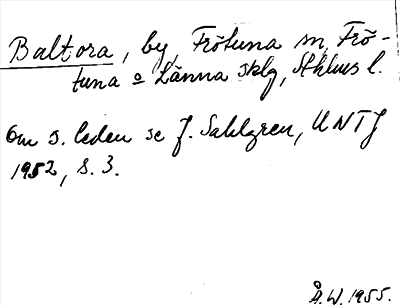 Baltora, by, Frötuna sn, Frö-
tuna o Länna sklg, Sthlms l.
Om s. leden se J. Sahlgren, UNTJ
1952, s. 3.
Å.W. 1955.